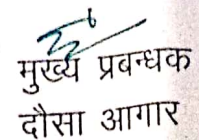 मुख्य प्रबन्धक
दौसा आगार